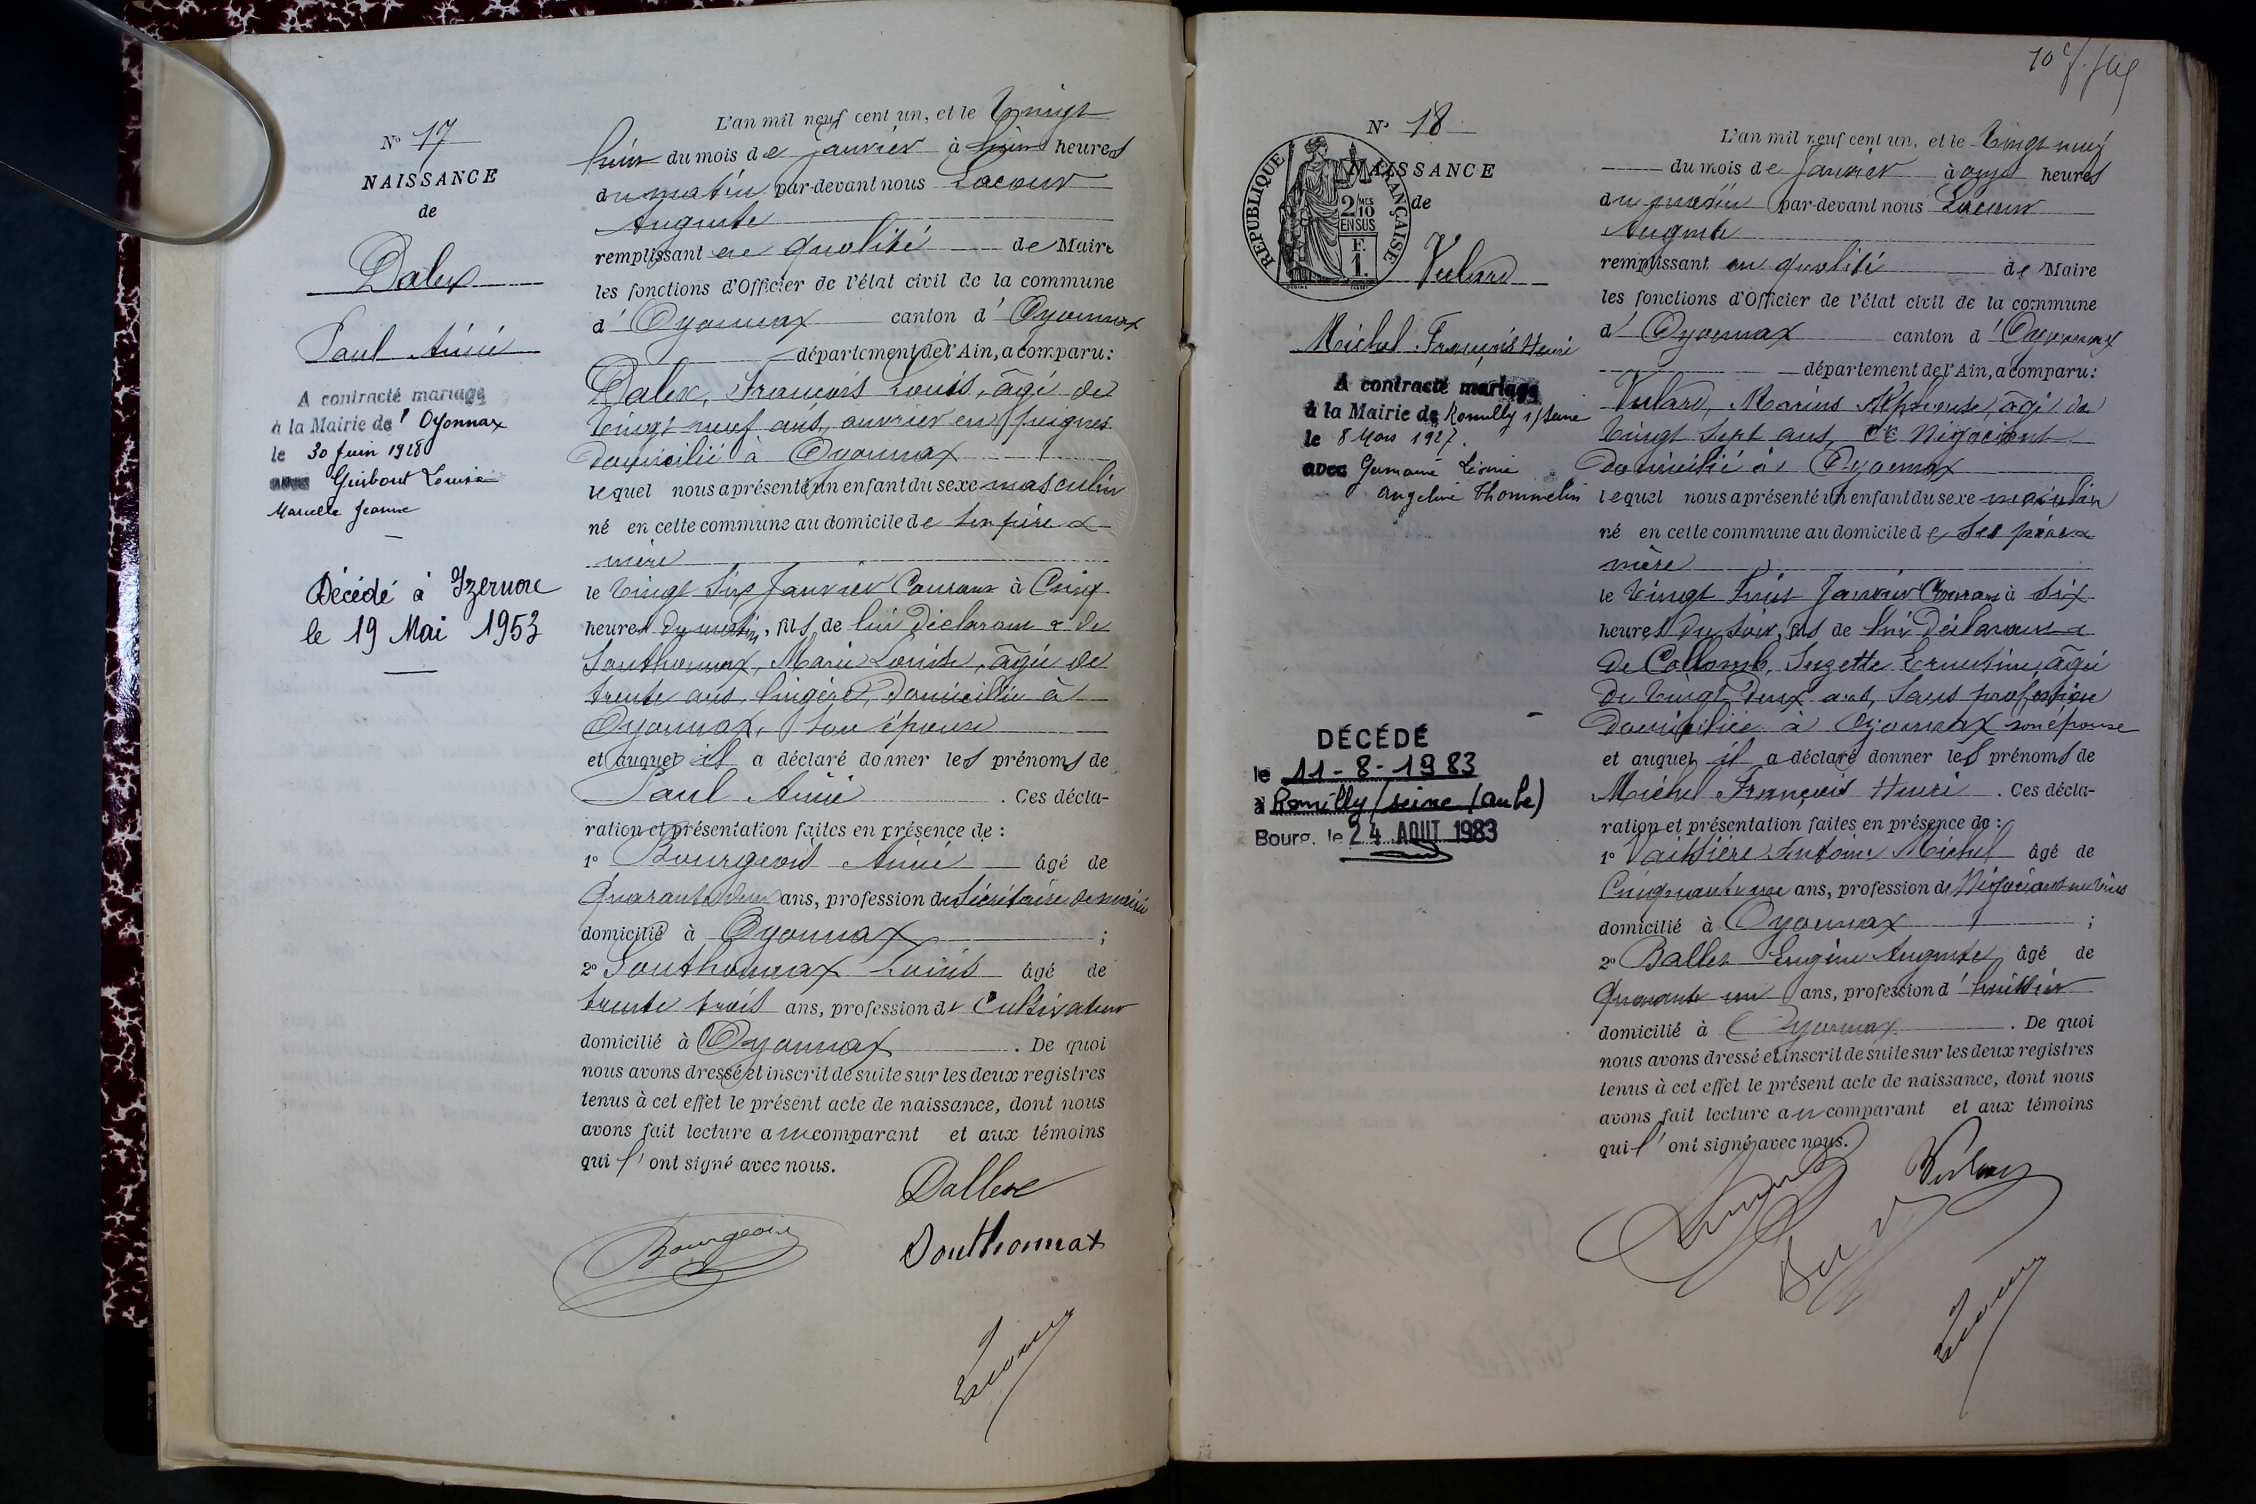 N° 17
NAISSANCE
de
Dalex
Paul Aimé
A contracté mariage
à la Mairie de l' Oyonnax
le 30 Juin 1928
avec Guibout Louise
Marcelle Jeanne
Décédé à Izernore
le 19 Mai 1953
L'an mil neuf cent un, et le Vingt
huit du mois de Janvier à huit heures
du matin par-devant nous Lacour
Auguste
remplissant en qualité de Maire
les fonctions d'Officier de l'état civil de la commune
d' Oyonnax canton d' Oyonnax
département de l'Ain, a comparu:
Dalex, François Louis, âgé de
Vingt neuf ans, ouvrier en peignes
domicilié à Oyonnax
lequel nous a présenté un enfant du sexe masculin
né en cette commune au domicile de son père &
mère
le Vingt Six Janvier Courant à Cinq
heures du matin, fils de lui déclarant & de
Southonnax, Marie Louise, âgée de
trente ans, lingère, domiciliée à
Oyonnax, son épouse
et auquel il a déclaré donner les prénoms de
Paul Aimé . Ces décla-
ration et présentation faites en présence de :
1° Bourgeois Aimé âgé de
Quarante deux ans, profession de Sécrétaire de mairie
domicilié à Oyonnax ;
2° Southonnax Louis âgé de
trente trois ans, profession de Cultivateur
domicilié à Oyonnax . De quoi
nous avons dressé et inscrit de suite sur les deux registres
tenus à cet effet le présent acte de naissance, dont nous
avons fait lecture au comparant et aux témoins
qui l'ont signé avec nous.
Dallex
Bourgeois
Southonnax
Lacour
10e f.
N° 18
NAISSANCE
de
REPUBLIQUE FRANÇAISE
2 MES
10
EN SUS
F.
1.
Vulard
Michel François Henri
A contracté mariage
à la Mairie de Romilly s/Seine
le 8 Mars 1927.
avec Germaine Léonie
Angeline Thommelin
DÉCÉDÉ
le 11-8-1983
à Romilly/seine (aube)
Bourg, le 24 AOUT 1983
L'an mil neuf cent un, et le Vingt neuf
du mois de Janvier à onze heures
du matin par-devant nous Lacour
Auguste
remplissant en qualité de Maire
les fonctions d'Officier de l'état civil de la commune
d' Oyonnax canton d' Oyonnax
département de l'Ain, a comparu:
Vulard, Marius Alphonse, âgé de
Vingt Sept ans, Négociant
domicilié à Oyonnax
lequel nous a présenté un enfant du sexe masculin
né en cette commune au domicile de ses père &
mère
le Vingt huit Janvier Courant à Six
heures du soir, fils de lui déclarant &
de Collomb, Suzette Ernestine, âgée
de Vingt Deux ans, sans profession
domiciliée à Oyonnax son épouse
et auquel il a déclaré donner les prénoms de
Michel François Henri . Ces décla-
ration et présentation faites en présence de :
1° Vaissière Antoine Michel âgé de
Cinquante un ans, profession de Négociant en vins
domicilié à Oyonnax ;
2° Ballet Eugène Auguste âgé de
Quarante un ans, profession d' huissier
domicilié à Oyonnax . De quoi
nous avons dressé et inscrit de suite sur les deux registres
tenus à cet effet le présent acte de naissance, dont nous
avons fait lecture au comparant et aux témoins
qui l'ont signé avec nous.
Vulard
Lacour